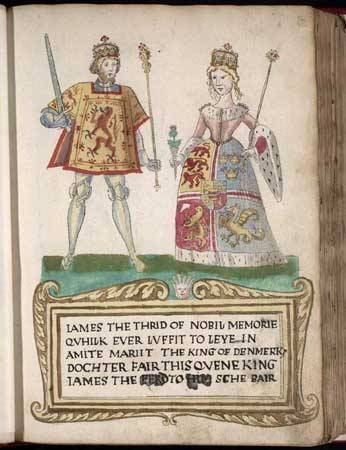 IAMES THE THRID OF NOBIL MEMORIE
QVHILK EVER LVFFIT TO LEVE IN
AMITE MARIIT THE KING OF DENMERK,
DOCHTER FAIR THIS QVENE KING
IAMES THE FERD TO SCHE BAIR